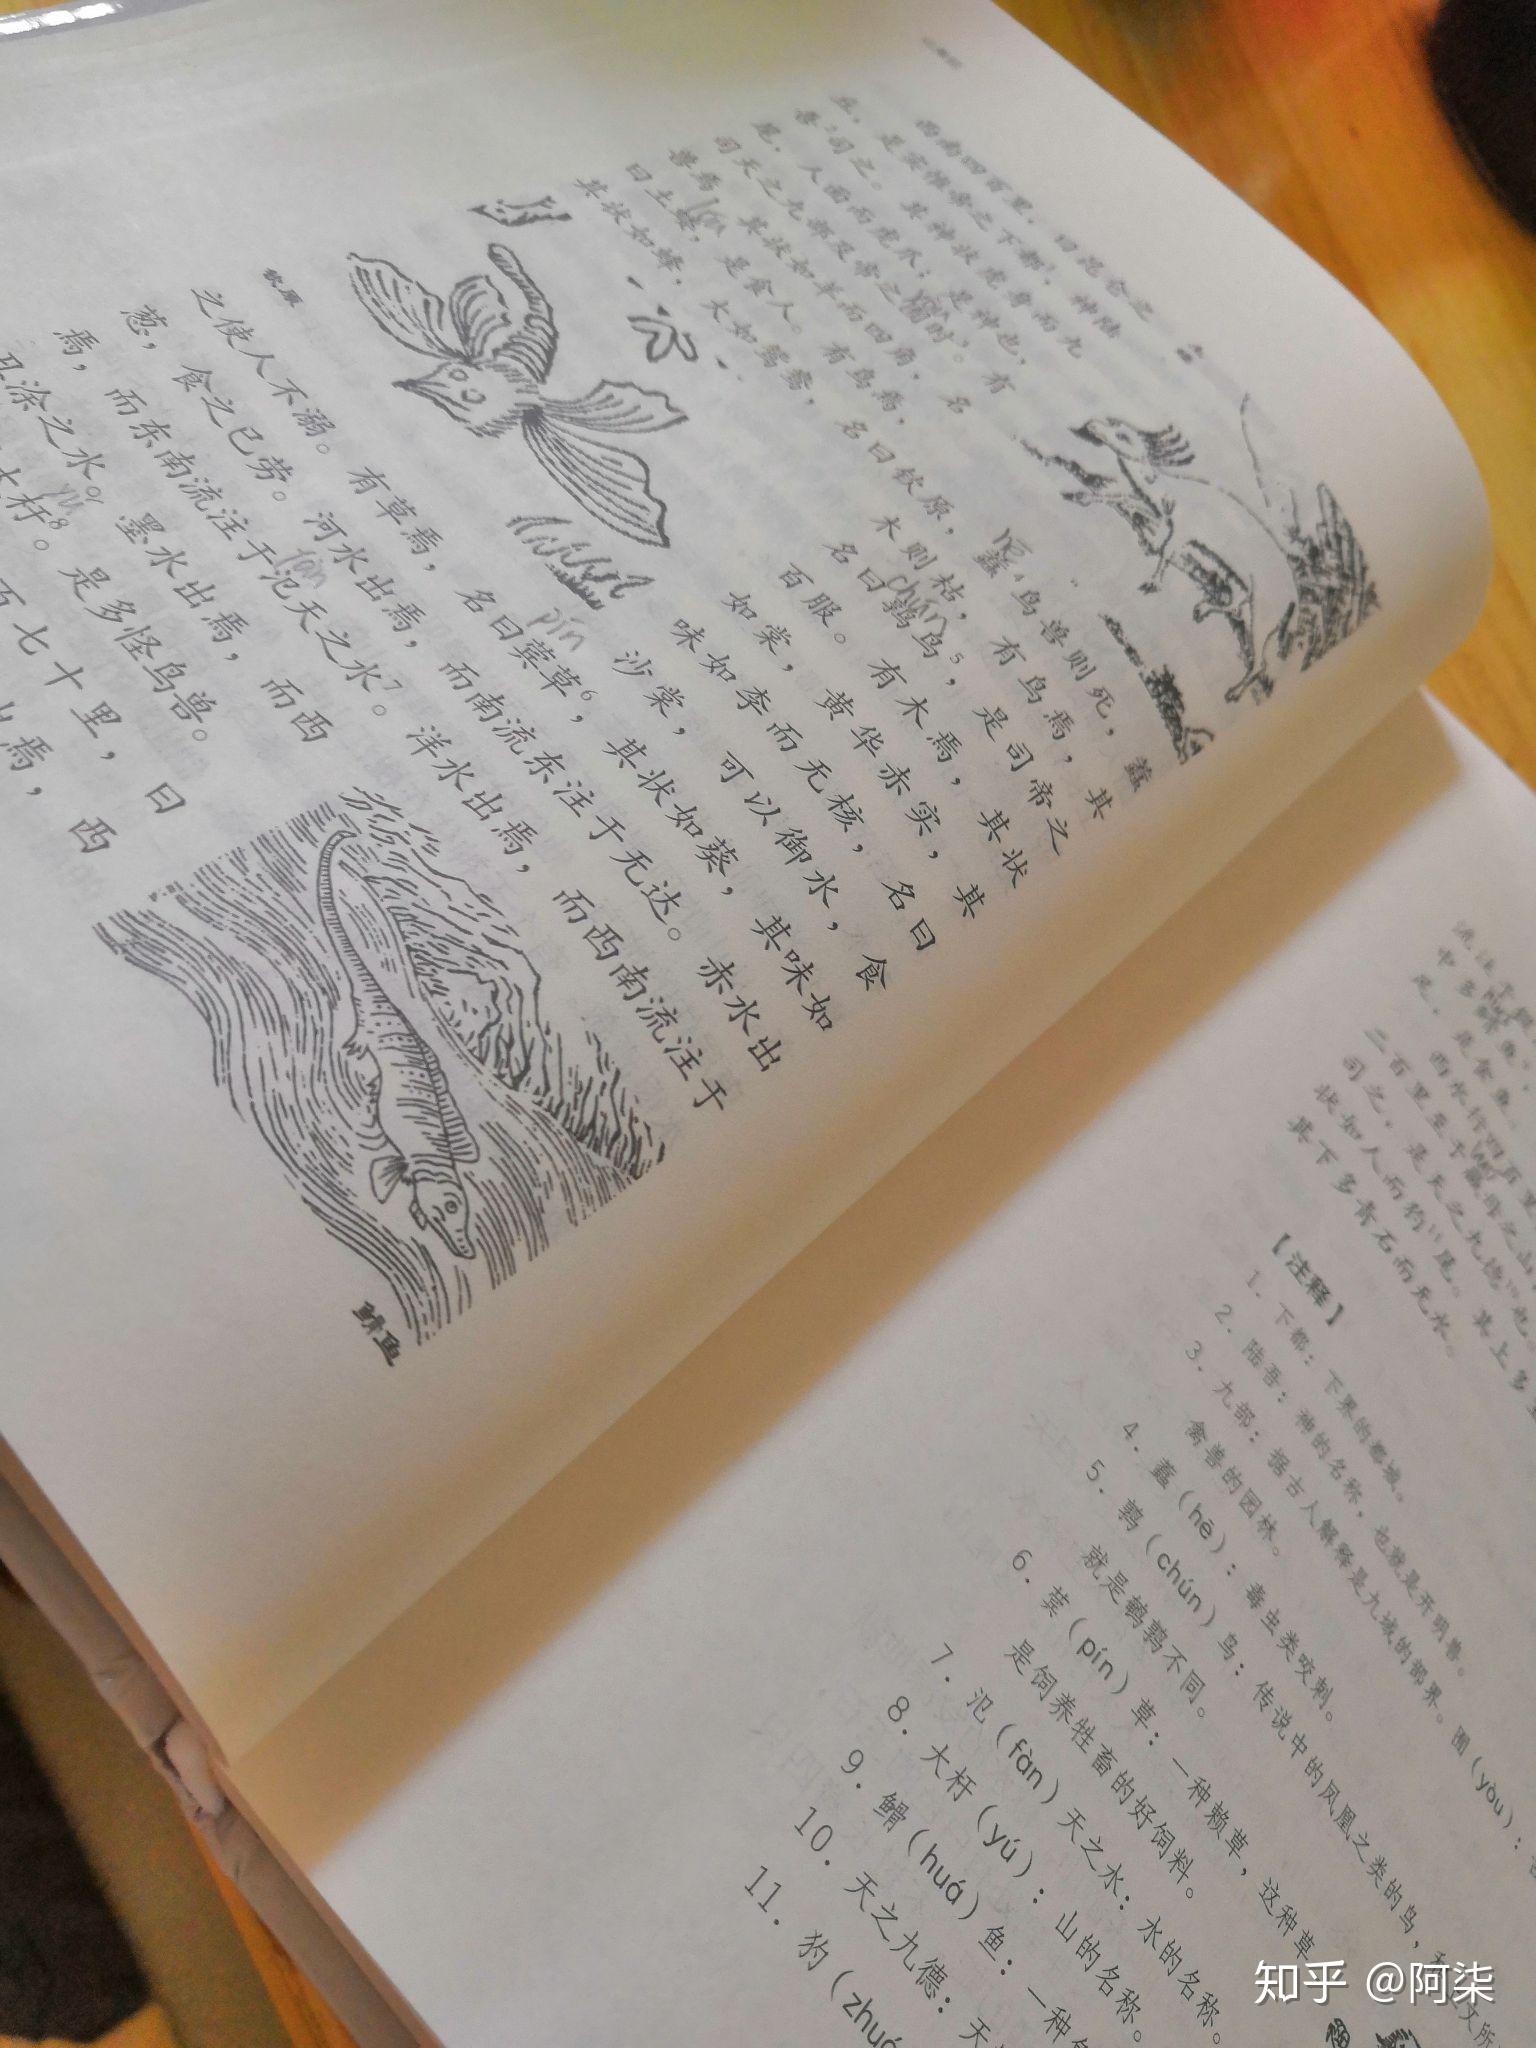 西南四百里，曰昆仑之
丘，是实惟帝之下都¹，神陆
吾²司之。其神状虎身而九
尾，人面而虎爪；是神也，
司天之九部及帝之囿时³。有
兽焉，其状如羊而四角，名
曰土蝼，是食人。有鸟焉，
其状如蜂，大如鸳鸯，名曰钦原，蠚⁴鸟兽则死，蠚
木则枯，有鸟焉，其
名曰鹑鸟⁵，是司帝之
百服。有木焉，其状
如棠，黄华赤实，其
味如李而无核，名曰
沙棠，可以御水，食
之使人不溺。有草焉，名曰薲草⁶，其状如葵，其味如
葱，食之已劳。河水出焉，而南流东注于无达。赤水出
焉，而东南流注于氾天之水⁷。洋水出焉，而西南流注于
丑涂之水。墨水出焉，而西
大杅⁸。是多怪鸟兽。
百七十里，曰
焉，西
lóu
hē
chún
pín
fàn
yú
钦原
鳛鱼
流注
中多
足，是食鱼。
西水行四百里
二百里至于蠃母之山
司之，是天之九德¹⁰也。
状如人而犳¹¹尾。其上多
其下多青石而无水。
【注释】
1. 下都：下界的都城。
2. 陆吾：神的名称，也就是开明兽。
3. 九部：据古人解释是九域的部界。囿（yòu）：
禽兽的园林。
4. 蠚（hē）：毒虫类咬刺。
5. 鹑（chún）鸟：传说中的凤凰之类的鸟，
就是鹌鹑不同。
6. 薲（pín）草：一种赖草，这种草
是饲养牲畜的好饲料。
7. 氾（fàn）天之水：水的名称。
8. 大杅（yú）：山的名称。
9. 鳛（huá）鱼：一种
10. 天之九德：天
11. 犳（zhuó
知乎 @阿柒